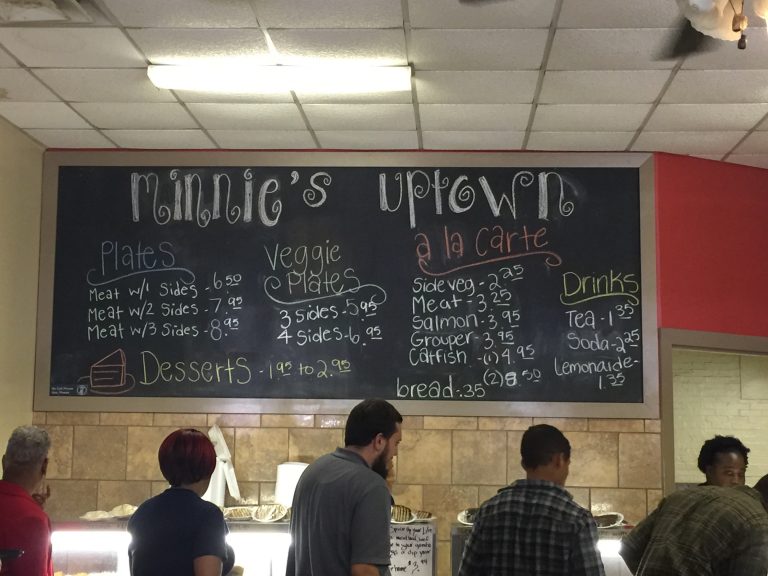 minnie's uptown
Plates
Meat w/1 Sides - 6.50
Meat w/2 Sides - 7.95
Meat w/3 Sides - 8.95
Veggie
Plates
3 Sides - 5.95
4 Sides - 6.95
a la carte
Side veg - 2.25
Meat - 3.25
Salmon - 3.95
Grouper - 3.95
Catfish - (1) 4.95
(2) 8.50
bread .35
Drinks
Tea - 1.35
Soda - 2.25
Lemonade -
1.35
Desserts - 1.95 to 2.95